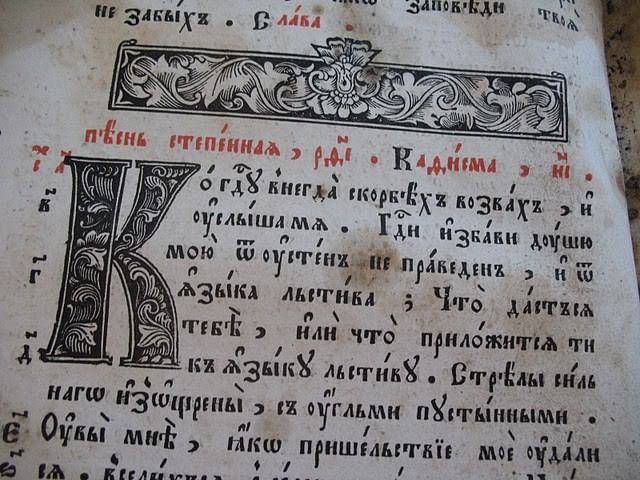 заповѣди твоѧ̀
не забы́хъ . Сла́ва .
пѣ́снь степе́нная , рѳ҃і . Каѳи́сма , и҃і .
Ко́ гдⷭ҇ꙋ внегда̀ скорбѣ́хъ возва́хъ , и҆
в҃ оу҆слы́ша мѧ̀ . Гдⷭ҇и и҆зба́ви дꙋ́шꙋ
мою̀ ѿ оу҆стє́нъ не пра́веденъ , и҆ ѿ
г҃ ꙗ҆зы́ка льсти́ва ; Что̀ да́стьсѧ
тебѣ̀ , и҆лѝ что̀ прило́житсѧ ти
д҃ къ ꙗ҆зы́кꙋ льсти́вꙋ . Стрѣ́лы си́ль
нагѡ и҆зѡщре́ны , съ оу҆́гльми пꙋсты́нными .
є҃ Оу҆вы̀ мнѣ̀ , ꙗ҆́кѡ прише́льствїе моѐ оу҆дали
ѕ҃ сѧ .